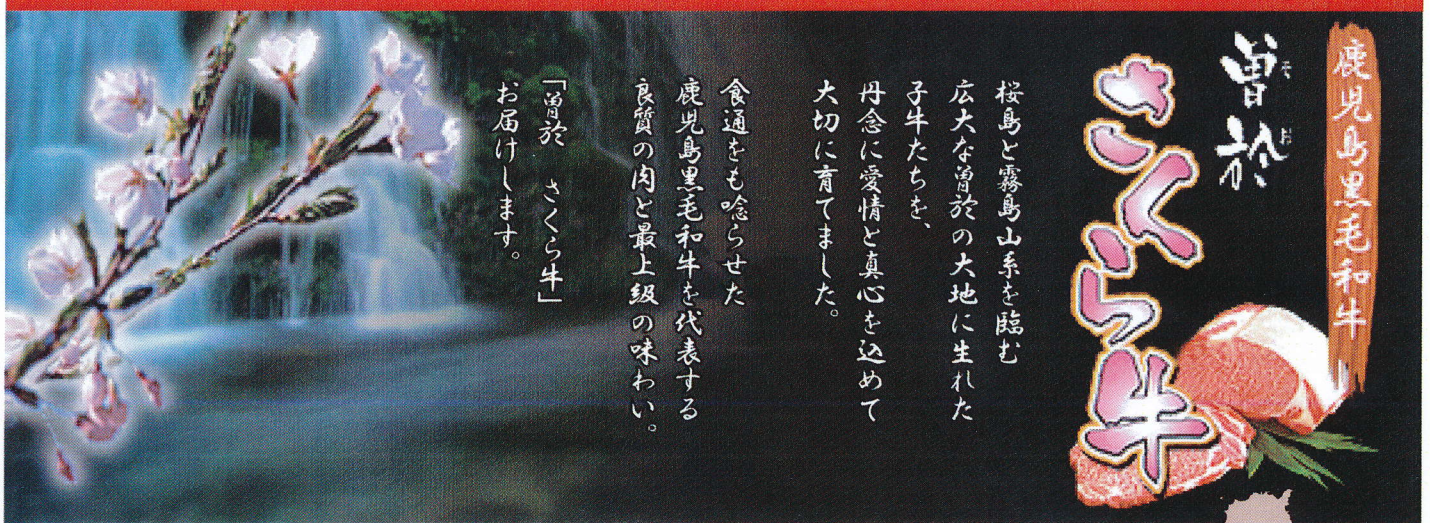 鹿児島黒毛和牛
曽於
そお
さくら牛
桜島と霧島山系を臨む
広大な曽於の大地に生れた
子牛たちを、
丹念に愛情と真心を込めて
大切に育てました。
食通をも唸らせた
鹿児島黒毛和牛を代表する
良質の肉と最上級の味わい。
「曽於　さくら牛」
お届けします。